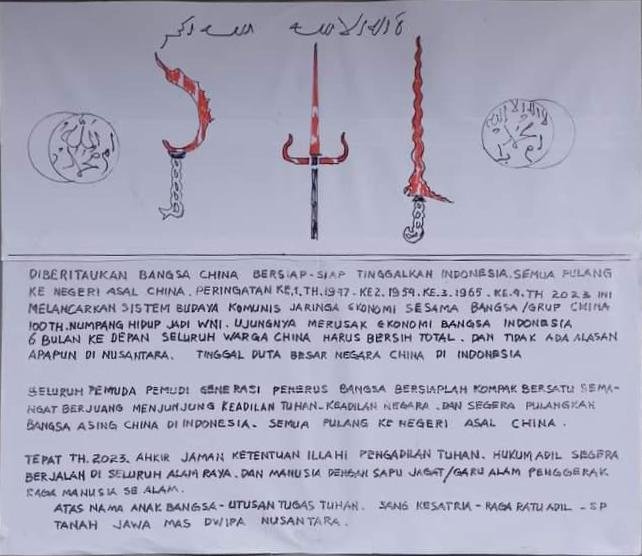 DIBERITAUKAN BANGSA CHINA BERSIAP-SIAP TINGGALKAN INDONESIA. SEMUA PULANG
KE NEGERI ASAL CHINA. PERINGATAN KE.1. TH. 1947. KE2. 1959. KE.3. 1965. KE.4. TH 2023 INI
MELANCARKAN SISTEM BUDAYA KOMUNIS JARINGA EKONOMI SESAMA BANGSA/GRUP CHINA
100TH. NUMPANG HIDUP JADI WNI. UJUNGNYA MERUSAK EKONOMI BANGSA INDONESIA
6 BULAN KE DEPAN SELURUH WARGA CHINA HARUS BERSIH TOTAL. DAN TIDAK ADA ALASAN
APAPUN DI NUSANTARA. TINGGAL DUTA BESAR NEGARA CHINA DI INDONESIA
SELURUH PEMUDA PEMUDI GENERASI PENERUS BANGSA BERSIAPLAH KOMPAK BERSATU SEMA-
NGAT BERJUANG MENJUNJUNG KEADILAN TUHAN-KEADILAN NEGARA. DAN SEGERA PULANGKAN
BANGSA ASING CHINA DI INDONESIA. SEMUA PULANG KE NEGERI ASAL CHINA.
TEPAT TH. 2023. AHKIR JAMAN KETENTUAN ILLAHI PENGADILAN TUHAN. HUKUM ADIL SEGERA
BERJALAN DI SELURUH ALAM RAYA. DAN MANUSIA DENGAN SAPU JAGAT/GARU ALAM PENGGERAK
RAGA MANUSIA SE ALAM.
ATAS NAMA ANAK BANGSA-UTUSAN TUGAS TUHAN. SANG KESATRIA-RAGA RATU ADIL-SP
TANAH JAWA MAS DWIPA NUSANTARA.